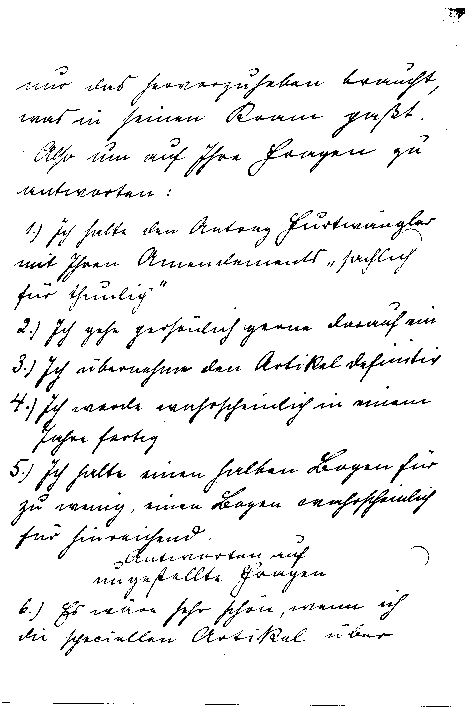 nur das hervorzuheben braucht,
was in seinen Kram paßt.
Also um auf Ihre Fragen zu
antworten:
1.) Ich halte den Antrag Furtwängler
mit Ihren Amendements „sachlich
für thunlich"
2.) Ich gehe persönlich gerne darauf ein
3.) Ich übernehme den Artikel definitiv
4.) Ich werde wahrscheinlich in einem
Jahre fertig
5.) Ich halte einen halben Bogen für
zu wenig, einen Bogen wahrscheinlich
für hinreichend.
Antworten auf
ungestellte Fragen
6.) Es wäre sehr schön, wenn ich
die speciellen Artikel über